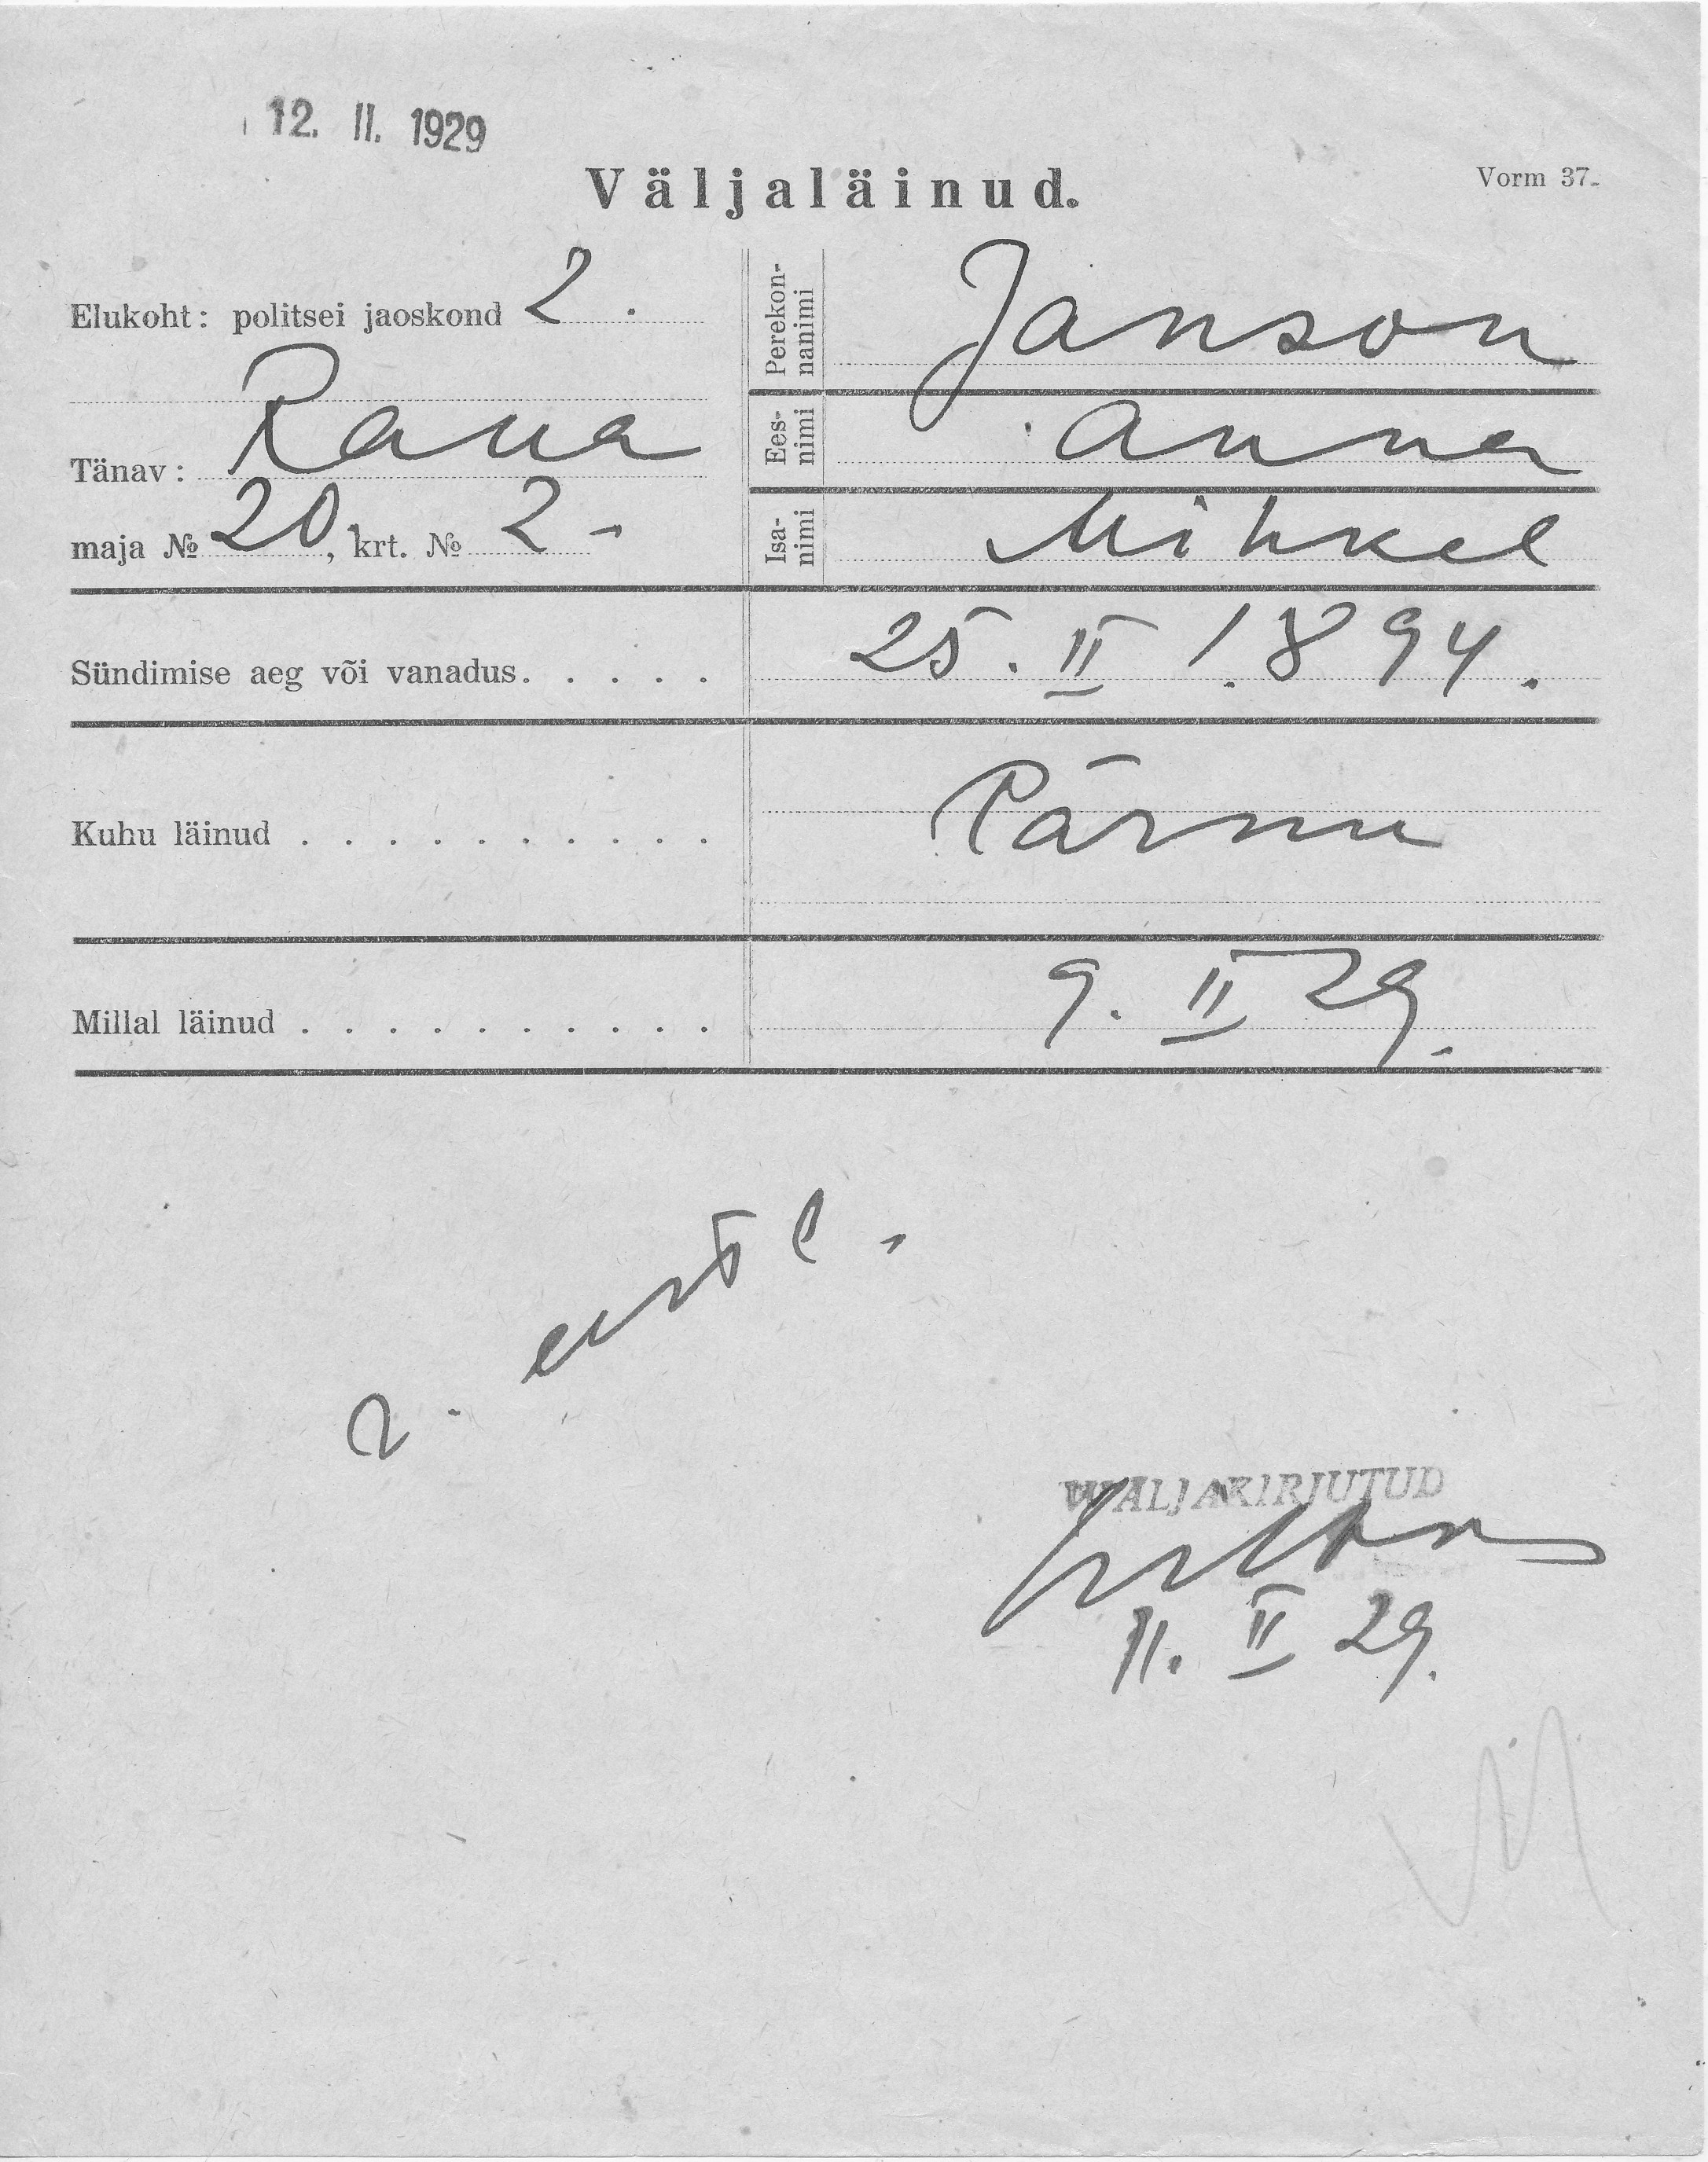 12. II. 1929
Väljaläinud.
Vorm 37.
Elukoht: politsei jaoskond 2.
Tänav: Raua
maja № 20, krt. № 2-
Perekon-
nanimi
Janson
Ees-
nimi
Anna
Isa-
nimi
Mihkel
Sündimise aeg või vanadus. . . . . 25. II 1894.
Kuhu läinud . . . . . . . . . . Pärnu
Millal läinud . . . . . . . . . . 9. II 29.
WÄLJAKIRJUTUD
11. II 29.